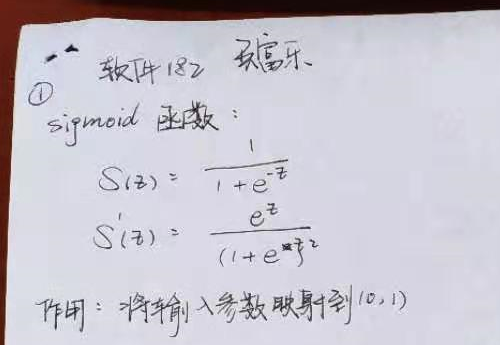 软件182 贾富乐
①
sigmoid 函数:
S(z) = 1 / (1 + e^-z)
S'(z) = e^z / (1 + e^z)^2
作用: 将输入参数映射到(0,1)